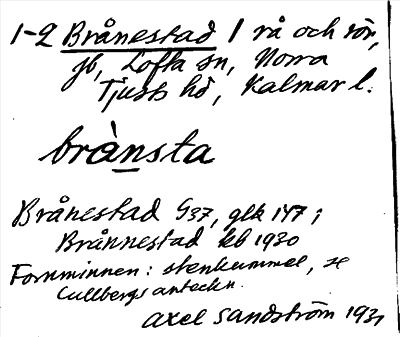 1-2 Brånestad 1 rå och rör,
jb, Lofta sn, Norra
Tjusts hd, Kalmar l.
brànsta
Brånestad G37, glk 147;
Brånnestad kb 1930
Fornminnen: stenkummel, se
Cullbergs anteckn.
Axel Sandström 1931